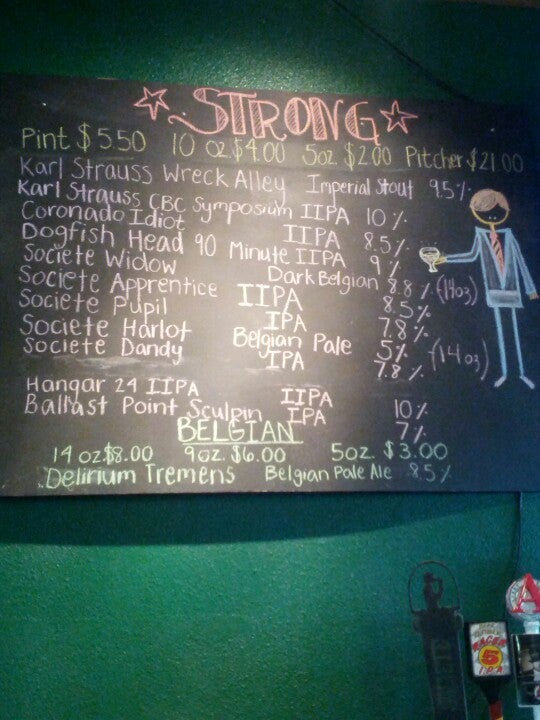 STRONG
Pint $5.50 10 oz $4.00 5oz. $2.00 Pitcher $21.00
Karl Strauss Wreck Alley Imperial Stout 9.5%
Karl Strauss CBC Symposium IIPA 10%
Coronado Idiot IIPA 8.5%
Dogfish Head 90 Minute IIPA 9%
Societe Widow Dark Belgian 8.8% (14oz)
Societe Apprentice IIPA 8.5%
Societe Pupil IPA 7.8%
Societe Harlot Belgian Pale 5% (14oz)
Societe Dandy IPA 7.8%
Hangar 24 IIPA IIPA 10%
Ballast Point Sculpin IPA 7%
BELGIAN
14 oz $8.00 9oz. $6.00 5oz. $3.00
Delirium Tremens Belgian Pale Ale 8.5%
RACER
5
IPA
A